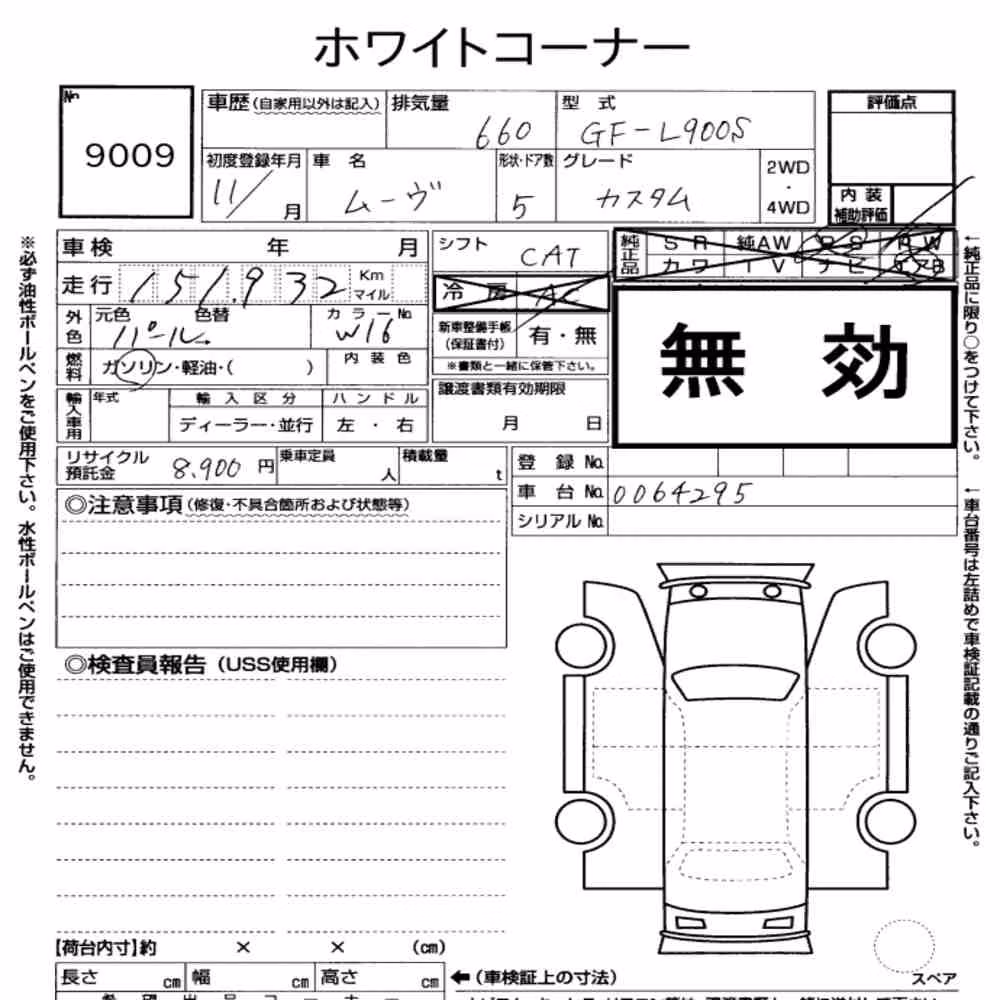 ホワイトコーナー
№
9009
車歴(自家用以外は記入)
排気量
660
型 式
GF-L900S
評価点
初度登録年月
11/ 月
車 名
ムーヴ
形状・ドア数
5
グレード
カスタム
2WD
・
4WD
内 装
補助評価
車検 年 月
シフト
CAT
純正品
SR 純AW PS PW
カワ TV ナビ エアB
走行 151,932 Km
マイル
冷房 AC
外色
元色 色替
パール
カラーNo.
W16
新車整備手帳
(保証書付)
有・無
※書類と一緒に保管下さい。
燃料
ガソリン・軽油・( )
内装色
無 効
輸入車用
年式
輸入区分
ディーラー・並行
ハンドル
左 ・ 右
譲渡書類有効期限
月 日
リサイクル
預託金
8,900 円
乗車定員
人
積載量
t
登 録 No.
車 台 No. 0064295
シリアル No.
◎注意事項(修復・不具合箇所および状態等)
◎検査員報告(USS使用欄)
※必ず油性ボールペンをご使用下さい。水性ボールペンはご使用できません。
←純正品に限り○をつけて下さい。
←車台番号は左詰めで車検証記載の通りご記入下さい。
【荷台内寸】約 × × (cm)
長さ cm 幅 cm 高さ cm
←(車検証上の寸法)
スペア